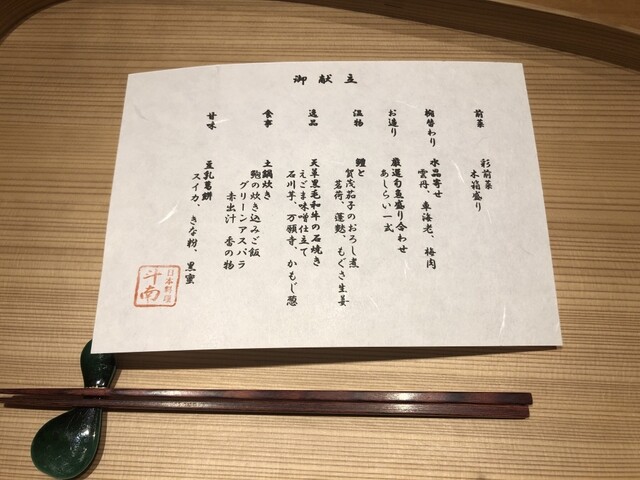 御献立
前菜
彩前菜
木箱盛り
椀替わり
水晶寄せ
雲丹、車海老、梅肉
お造り
厳選旬魚盛り合わせ
あしらい一式
温物
鱧と
賀茂茄子のおろし煮
茗荷、蓬麩、もぐさ生姜
逸品
天草黒毛和牛の石焼き
えごま味噌仕立て
石川芋、万願寺、かもじ葱
食事
土鍋炊き
鮑の炊き込みご飯
グリーンアスパラ
赤出汁 香の物
甘味
豆乳葛餅
スイカ、きな粉、黒蜜
日本料理
斗南